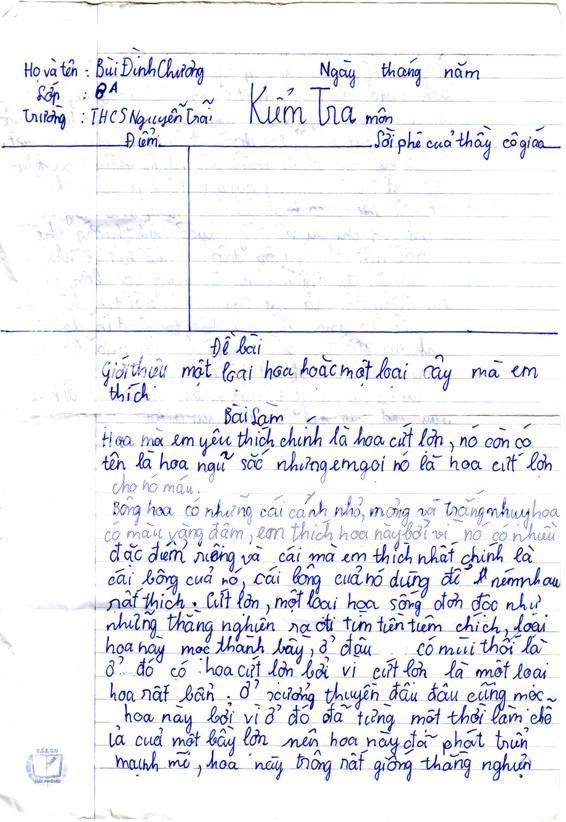 Họ và tên : Bùi Đình Chương
Ngày tháng năm
Lớp : 8A
Kiểm Tra môn
Trường : THCS Nguyễn Trãi
Điểm
Lời phê cuả thầy cô giáo
Đề bài
Giới thiệu một loại hoa hoặc một loai cây mà em
thích.
Bài Làm
Hoa mà em yêu thích chính là hoa cứt lợn, nó còn có
tên là hoa ngũ sắc nhưng em gọi nó là hoa cứt lợn
cho nó máu.
Bông hoa có những cái cánh nhỏ, mỏng và trắng nhuy hoa
có màu vàng đâm, em thích hoa này bởi vì nó có nhiều
đặc điểm riêng và cái mà em thích nhất chính là
cái bông cuả nó, cái bông cuả nó dùng để ném nhau
rất thích. Cứt lơn, một loại hoa sống đơn độc như
những thằng nghiên ra đi tìm tiên tiêm chích, loài
hoa này moc thành bầy, ở đâu có mùi thối là
ở đó có hoa cứt lơn bởi vì cứt lơn là một loại
hoa rất bẩn. Ở xưởng thuyền đâu đâu cũng mọc
hoa này bởi vì ở đó đã từng một thời làm chỗ
ỉa cuả một bầy lơn nên hoa này đã phát triển
mạnh mẽ, hoa này trông rất giống thằng nghiện